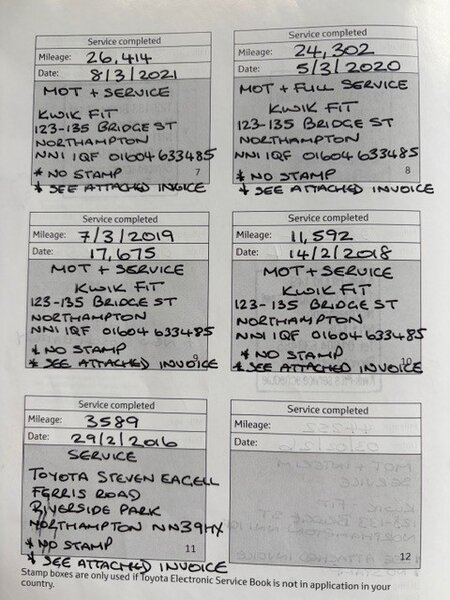 Service completed
Mileage: 26,414
Date: 8/3/2021
MOT + SERVICE
KWIK FIT
123-135 BRIDGE ST
NORTHAMPTON
NN1 1QF 01604 633485
* NO STAMP
* SEE ATTACHED INVOICE
7
Service completed
Mileage: 24,302
Date: 5/3/2020
MOT + FULL SERVICE
KWIK FIT
123-135 BRIDGE ST
NORTHAMPTON
NN1 1QF 01604 633485
* NO STAMP
* SEE ATTACHED INVOICE
8
Service completed
Mileage: 7/3/2019
Date: 17,675
MOT + SERVICE
KWIK FIT
123-135 BRIDGE ST
NORTHAMPTON
NN1 1QF 01604 633485
* NO STAMP
* SEE ATTACHED INVOICE
9
Service completed
Mileage: 11,592
Date: 14/2/2018
MOT + SERVICE
KWIK FIT
123-135 BRIDGE ST
NORTHAMPTON
NN1 1QF 01604 633485
* NO STAMP
* SEE ATTACHED INVOICE
10
Service completed
Mileage: 3589
Date: 29/2/2016
SERVICE
TOYOTA STEVEN EAGELL
FERRIS ROAD
RIVERSIDE PARK
NORTHAMPTON NN39HX
* NO STAMP
* SEE ATTACHED INVOICE
11
Service completed
Mileage:
Date:
12
Stamp boxes are only used if Toyota Electronic Service Book is not in application in your
country.